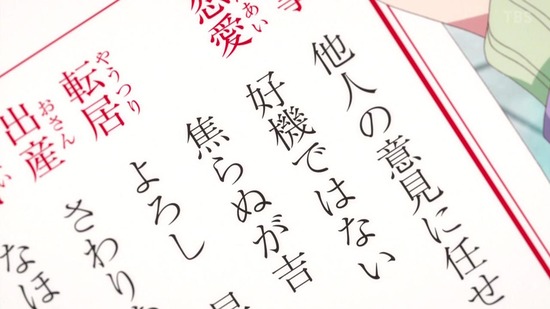 TBS
他人の意見に任せ
恋愛 あい
好機ではない
焦らぬが吉
転居 やうつり
よろし
出産 おさん
さわり
なほ